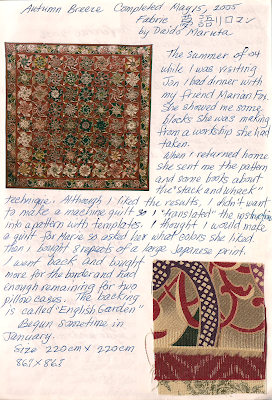 Autumn Breeze Completed May 15, 2005
Fabric 夢語りロマン
by Daido Maruta
The summer of 04
while I was visiting
Jon I had dinner with
my friend Marian Fox.
She showed me some
blocks she was making
from a workshop she had
taken.
When I returned home
she sent me the pattern
and some books about
the "stack and whack"
technique. Although I liked the results, I didn't want
to make a machine quilt so I "translated" the instructions
into a pattern with templates. I thought I would make
a quilt for Marie so asked her what colors she liked
then I bought 7 repeats of a large Japanese print.
I went back and bought
more for the border and had
enough remaining for two
pillow cases. The backing
is called "English Garden"
Begun sometime in
January.
Size 220cm x 220cm
86½ x 86½